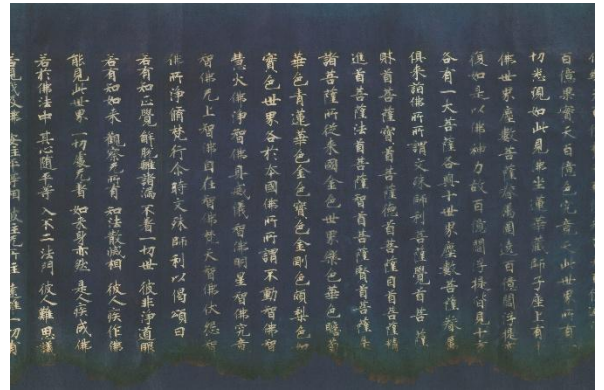 百億果實天百億色究竟天此世界所有一
切悉現如此見佛坐蓮華藏師子座上有十
佛世界塵數菩薩眷屬圍遶百億閻浮提
復如是以佛神力故百億閻浮提皆見十方
各有一大菩薩各與十世界塵數菩薩眷屬
俱來詣佛所所謂文殊師利菩薩覺首菩薩
財首菩薩寶首菩薩德首菩薩目首菩薩精
進首菩薩法首菩薩智首菩薩賢首菩薩是
諸菩薩所從來國金色世界樂色世界華色
華色青蓮華色金色寶色金剛色頗梨色如
實色世界各於本國佛所所謂不動智佛智
慧火佛淨智佛具威儀智佛明星智佛究竟
智佛无上智佛自在智佛梵天智佛伏怨智
佛所淨脩梵行尒時文殊師利以偈頌曰
若有知正覺 解脫離諸漏 不着一切世 彼非淨道眼
若有知如來 觀察无所有 知法散滅相 彼人疾作佛
能見此世界 一切處无着 如來身亦然 是人疾成佛
若於佛法中 其心隨平等 入不二法門 彼人難思議